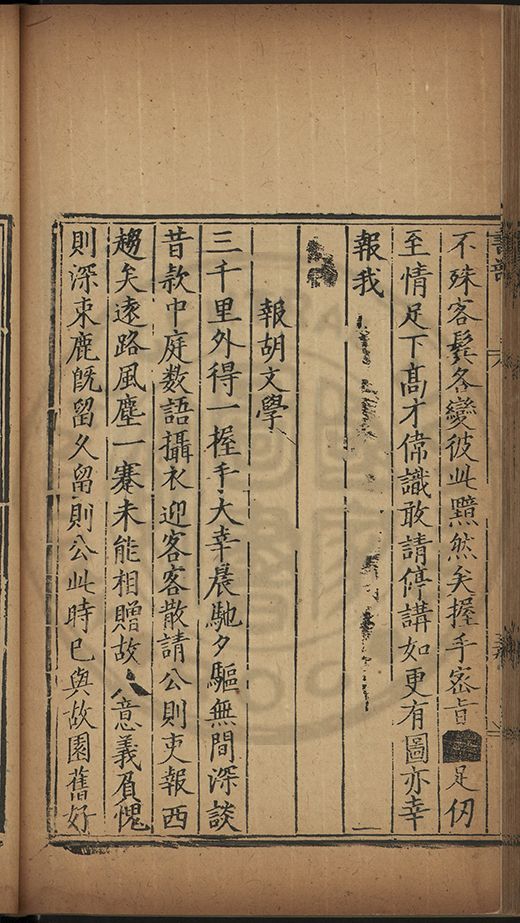 不殊客鬢各變彼此黯然矣握手密旨足仞
至情足下高才偉識敢請停講如更有圖亦幸
報我
報胡文學
三千里外得一握手大幸晨馳夕驅無間深談
昔款中庭数語攝衣迎客客散請公則吏報西
趨矣遠路風塵一蹇未能相贈故人意義眉愧
則深束鹿旣留久留則公此時已與故園舊好